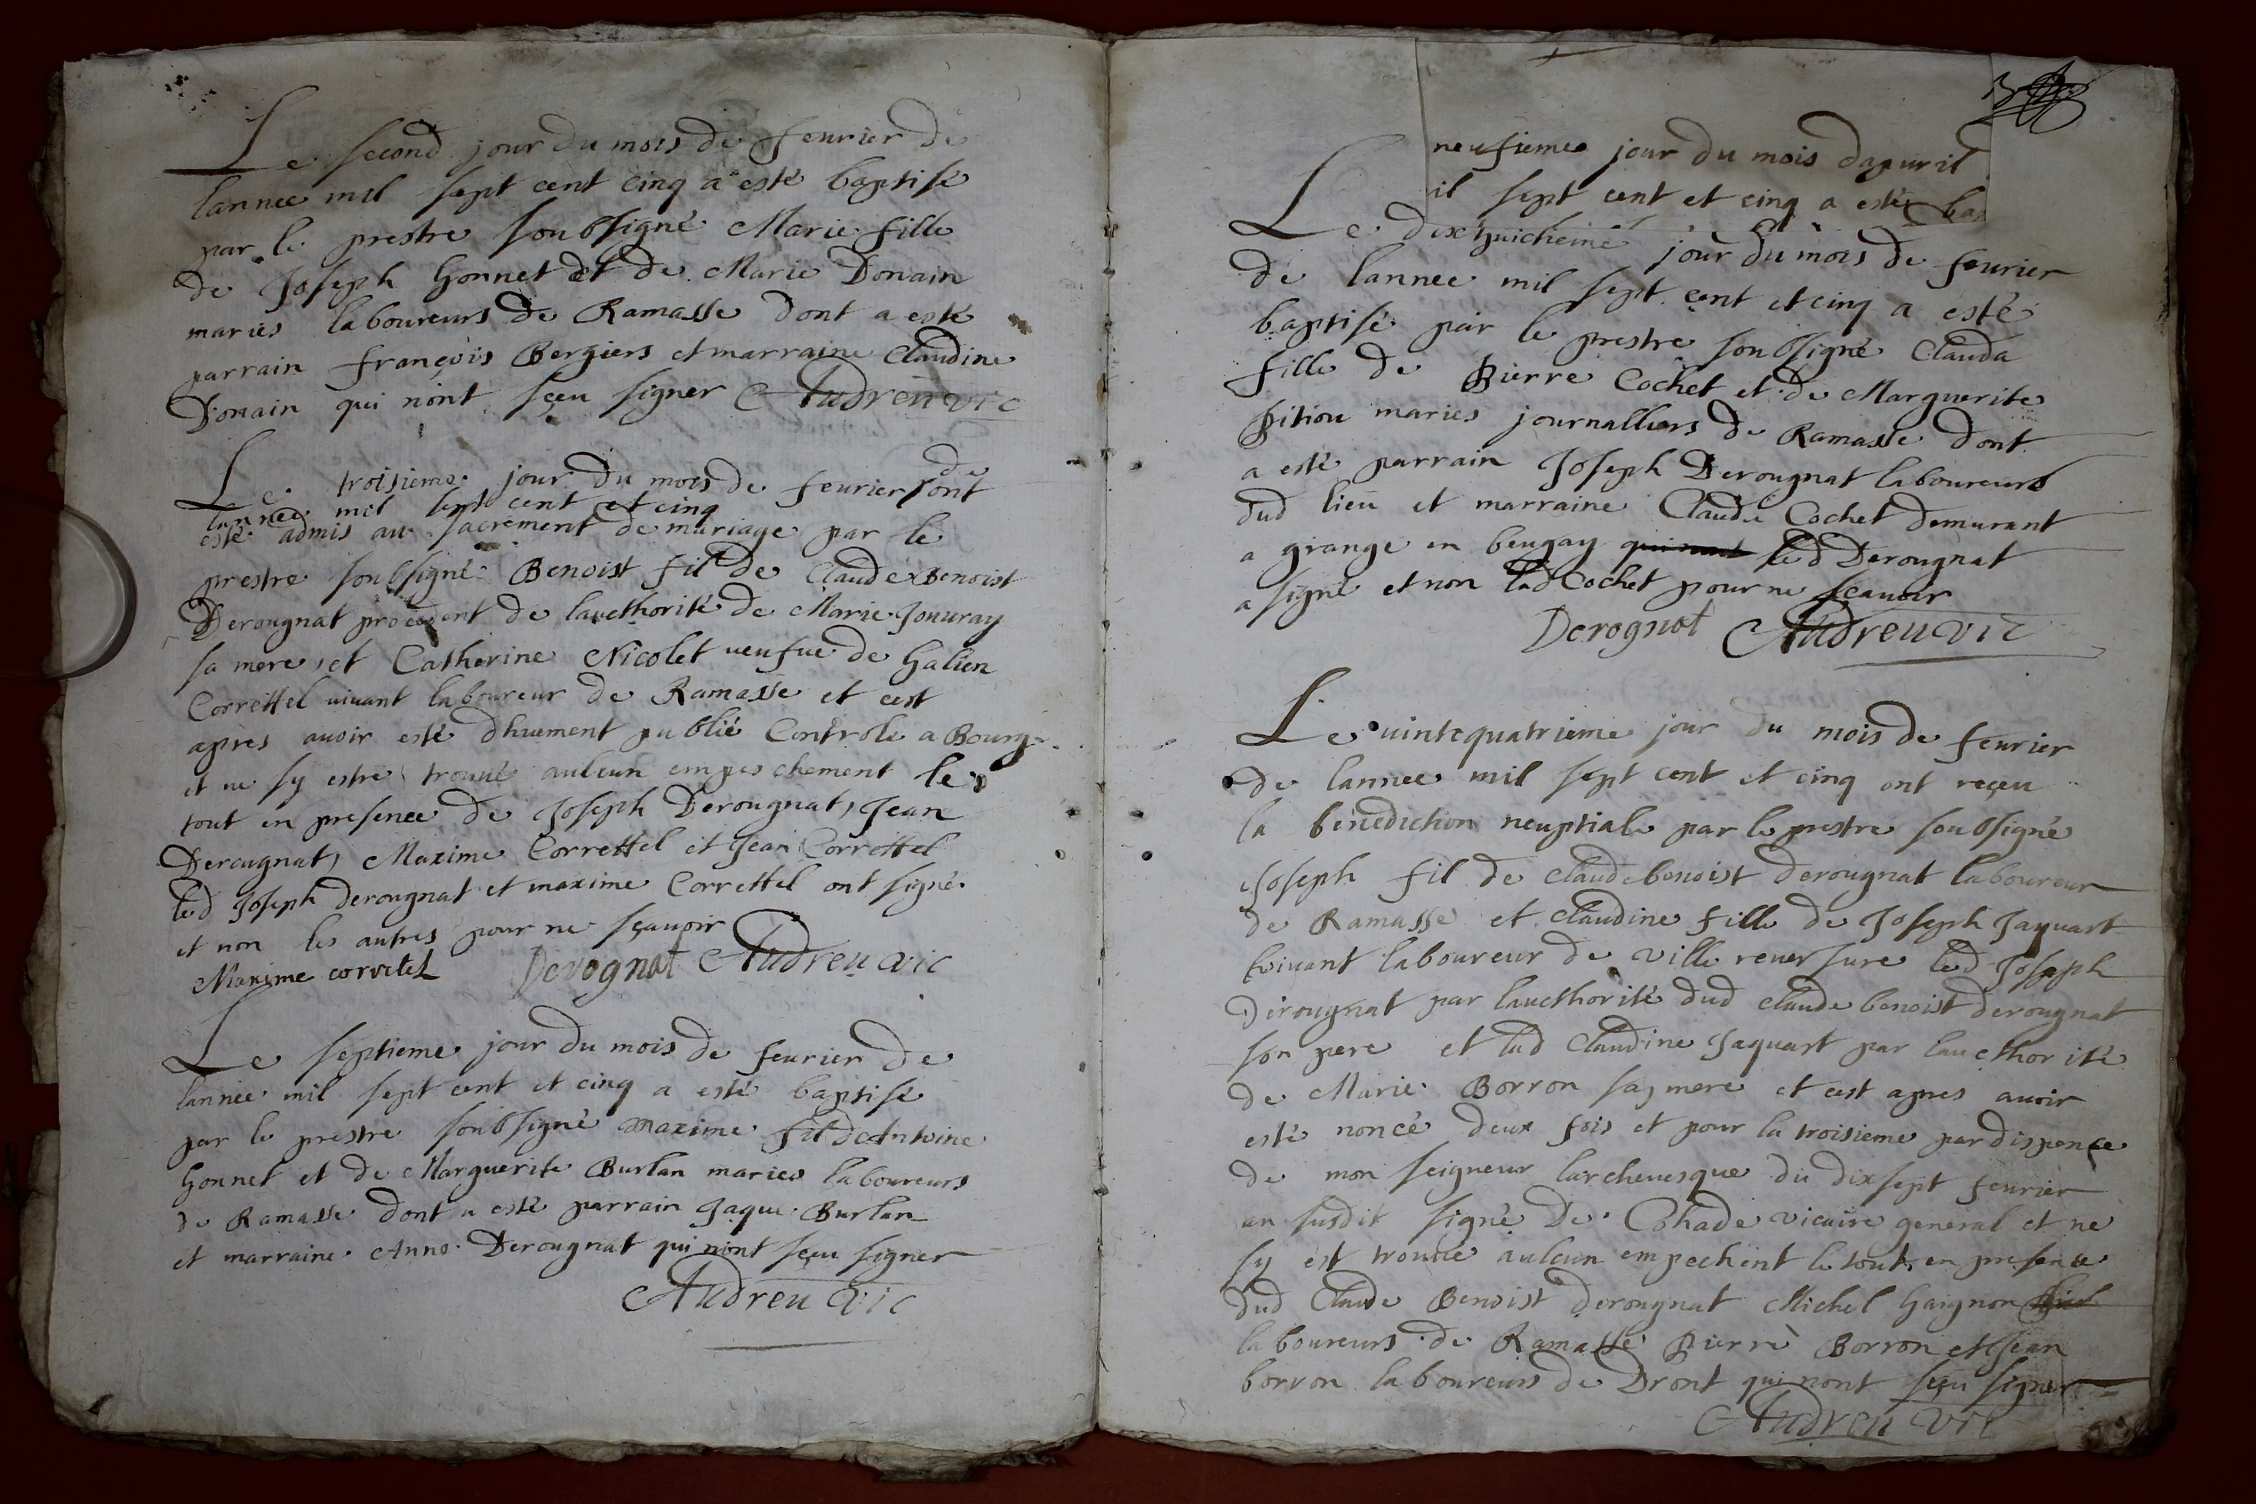 Le second jour du mois de feurier de
lannee mil sept cent cinq a esté baptisé
par le prestre soubsigné Marie fille
de Joseph Gonnet et de Marie Donain
mariés laboureurs de Ramasse dont a esté
parrain françois Bergiers et marraine Claudine
Donain qui nont sçeu signer Audreu vic
Le troisieme jour du mois de feurier de
lannee mil sept cent et cinq sont
esté admis au sacrement de mariage par le
prestre soubsigné Benoist fil de Claude Benoist
Derougnat procedent de laucthorité de Marie Jouuray
sa mere, et Catherine Nicolet ueufue de Galien
Correttel uiuant laboureur de Ramasse et cest
apres auoir esté dhuement publié Controlé a Bourg
et ne sy estre trouué auleun empeschement le
tout en presence de Joseph Derougnat, Jean
Derougnat, Maxime Correttel et Jean Correttel
led Joseph derougnat et maxime Correttel ont signé
et non les autres pour ne sçauoir
Maxime corretel Derognat Audreu vic
Le septieme jour du mois de feurier de
lannee mil sept cent et cinq a esté baptisé
par le prestre soubsigné maxime fil de Antoine
Gonnet et de Marguerite Burlan mariés laboureurs
de Ramasse dont a esté parrain Jaque Burlan
et marraine Anne Derougnat qui nont sçeu signer
Audreu vic
neufieme jour du mois dapuril
il sept cent et cinq a esté bas
Le dixhuictieme jour du mois de feurier
de lannee mil sept cent et cinq a esté
baptisé par le prestre soubsigné Clauda
fille de Pierre Cochet et de Marguerite
Pitiou mariés journalliers de Ramasse dont
a esté parrain Joseph Derougnat laboureurs
dud lieu et marraine Claude Cochet demurant
a grange en beugay qui nont led Derougnat
a signé et non lad Cochet pour ne sçauoir
Derognat Audreu vic
Le uintequatrieme jour du mois de feurier
de lannee mil sept cent et cinq ont reçeu
la benediction neuptiale par le prestre soubsigné
Joseph fil de claude benoist derougnat laboureur
de Ramasse et claudine fille de Joseph Jaquart
uiuant laboureur de ville reuersure led Joseph
Dirougnat par laucthorité dud claude benoist derougnat
son pere et lad Claudine Jaquart par laucthorité
de Marie Borron sa mere et cest apres auoir
esté noncé deux fois et pour la troisieme par dispence
de mon seigneur larcheuesque du dixsept feurier
an susdit signé De Cohade vicaire general et ne
sy est trouué auleun empechent le tout en presence
dud Claude Benoist derougnat Michel Gaignon
laboureurs de Ramasse Pierre Borron et Jean
borron laboureurs de Dront qui nont sçeu signer
Audreu vic